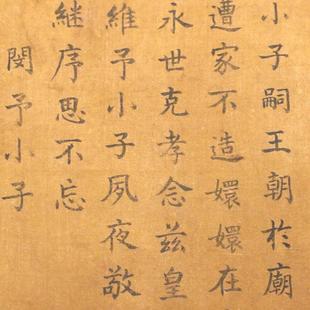 小子嗣王朝於廟
遭家不造嬛嬛在
永世克孝念茲皇
維予小子夙夜敬
継序思不忘
閔予小子